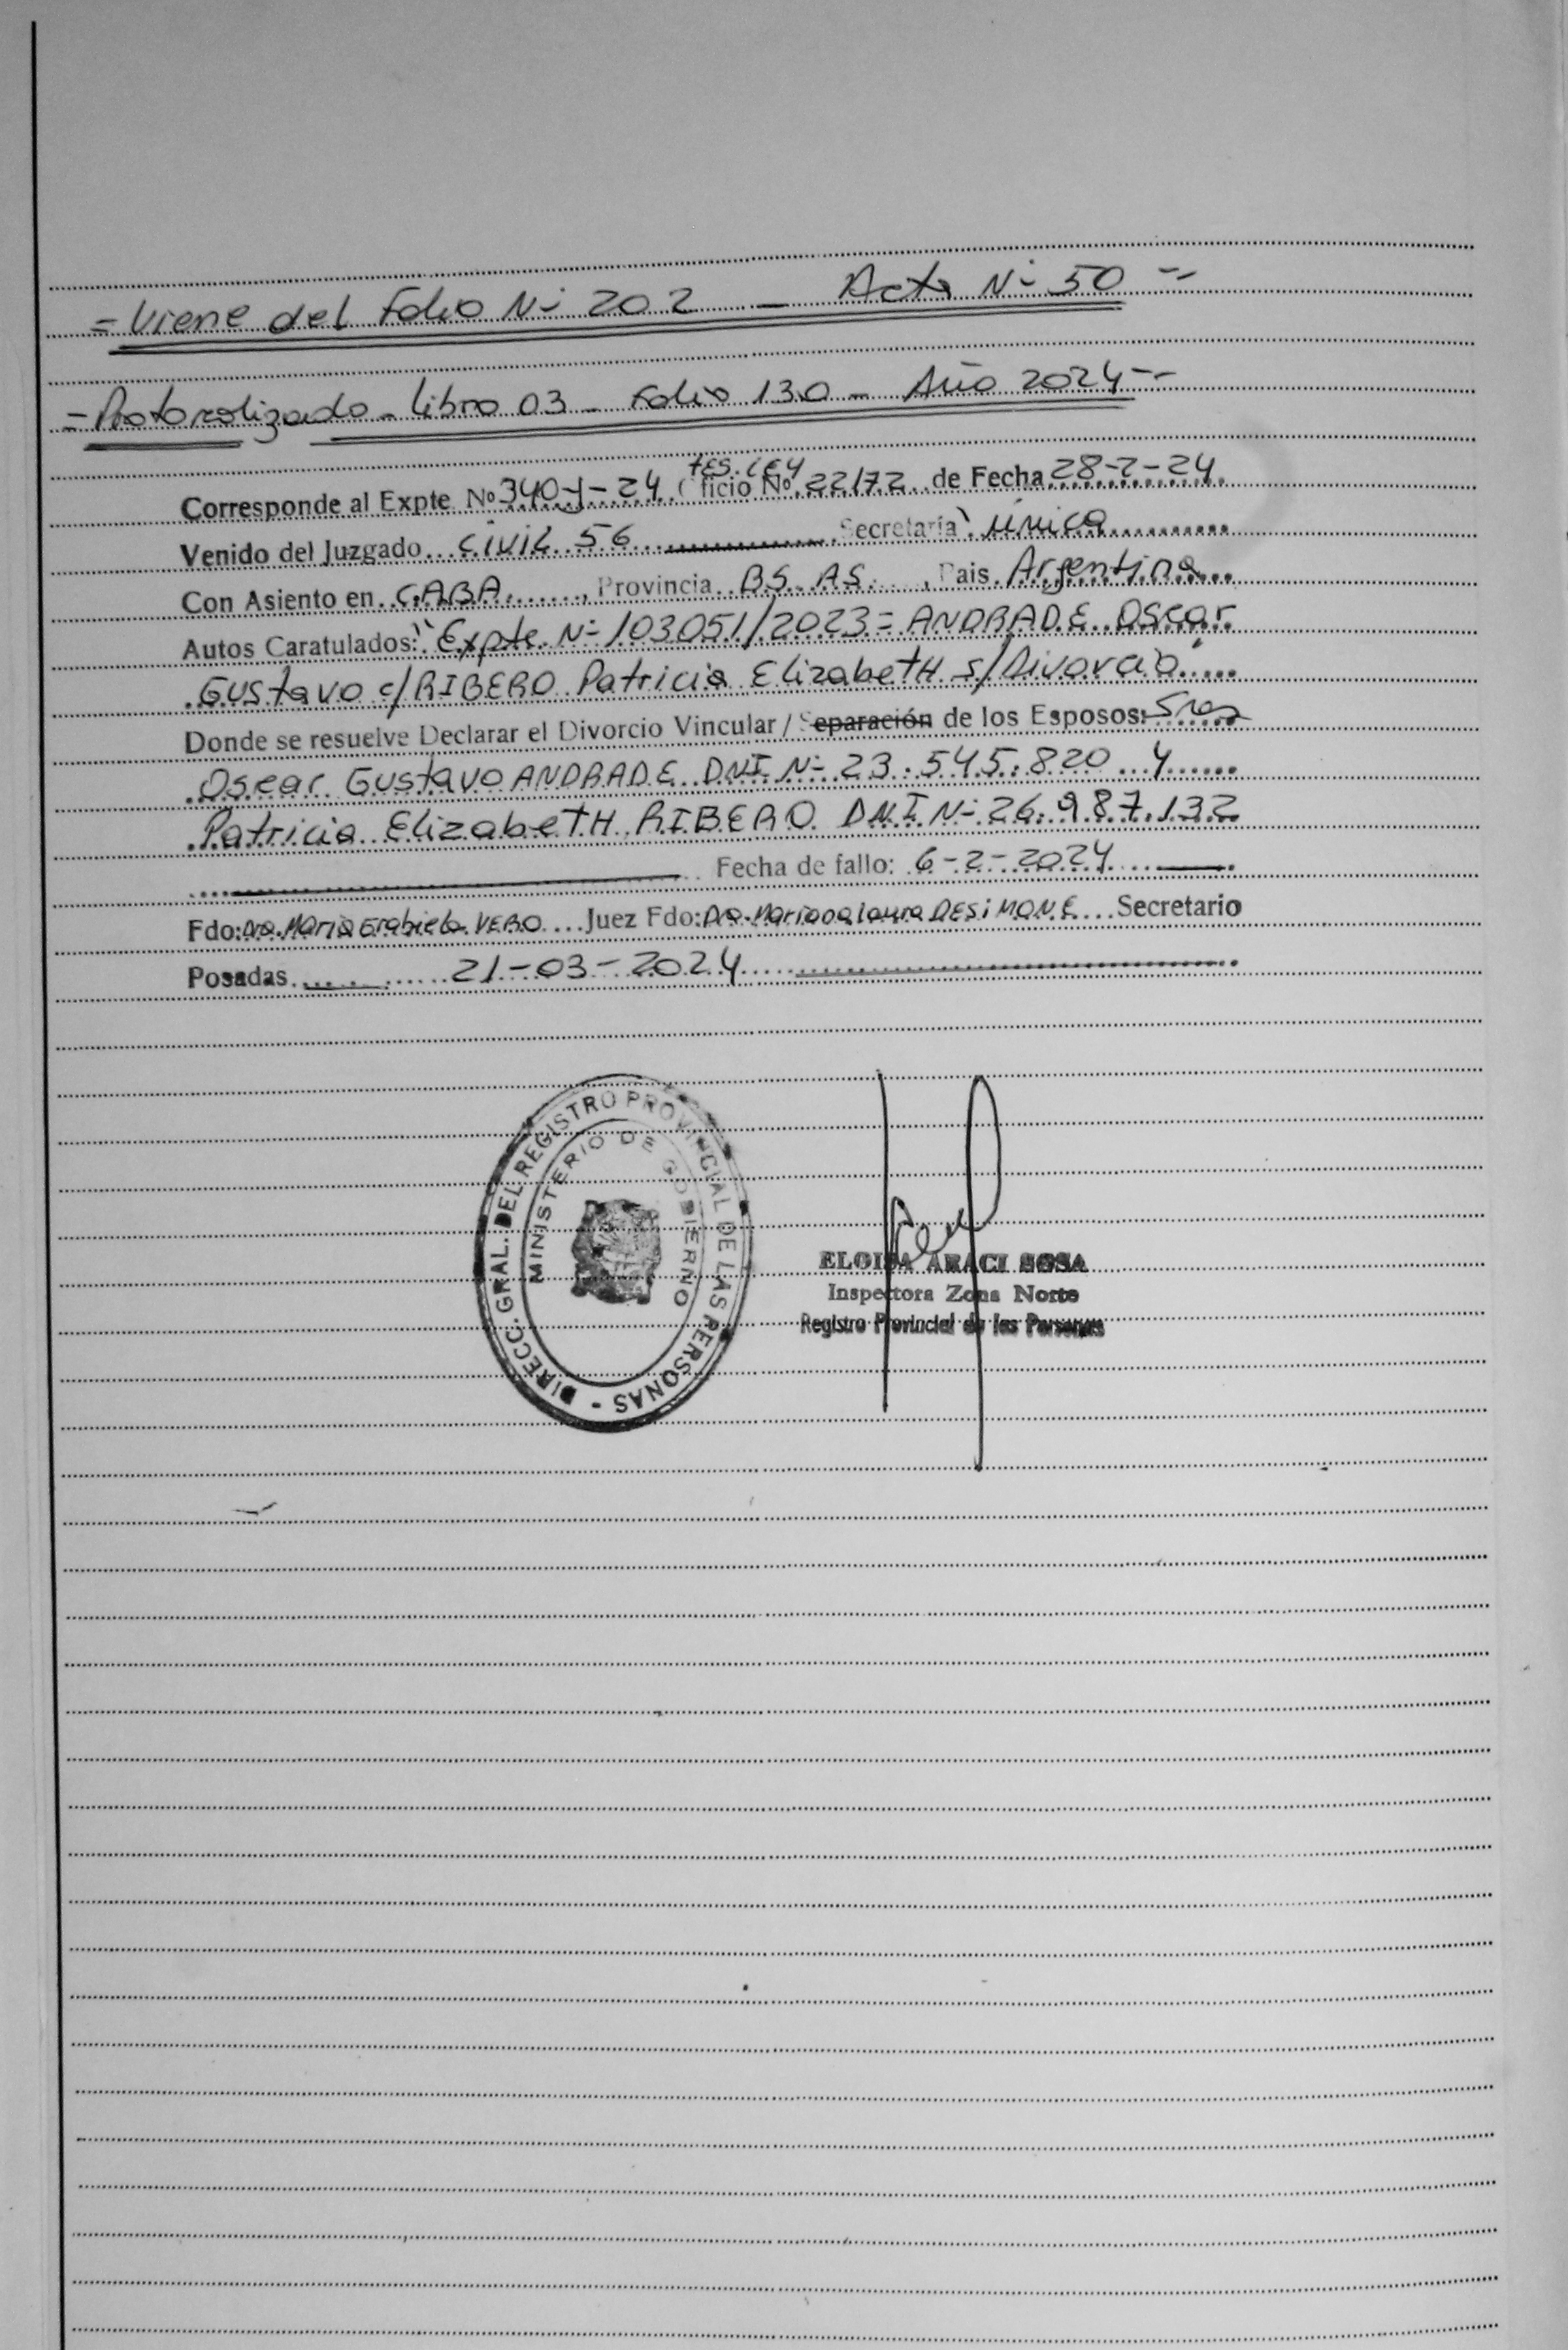 = Viene del Folio Nº 202 — Acta Nº 50 --
- Protocolizado - Libro 03 - Folio 130 - Año 2024 --
Corresponde al Expte Nº 340-J-24 Oficio Nº TES. LEY 22172 de Fecha 28-2-24
Venido del Juzgado CIVIL 56 Secretaría Única
Con Asiento en C.A.B.A., Provincia BS. AS., Pais Argentina
Autos Caratulados: "Expte Nº 103051/2023 = ANDRADE Oscar
Gustavo c/ RIBERO Patricia ElizabetH s/ Divorcio"
Donde se resuelve Declarar el Divorcio Vincular / Separación de los Esposos: Sres
Oscar Gustavo ANDRADE DNI Nº 23.545.820 y
Patricia ElizabetH RIBERO DNI Nº 26.987.132
Fecha de fallo: 6-2-2024
Fdo: Dra. Maria Grabiela VERO Juez Fdo: Dra. Mariana Laura DESIMONE Secretario
Posadas 21-03-2024
DIRECC. GRAL. DEL REGISTRO PROVINCIAL DE LAS PERSONAS -
MINISTERIO DE GOBIERNO
ELOISA ARACI SOSA
Inspectora Zona Norte
Registro Provincial de las Personas